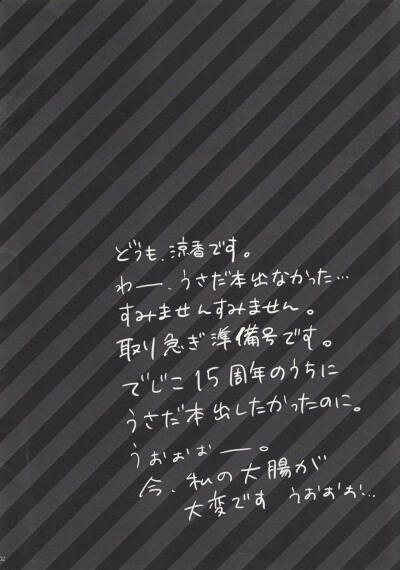 どうも、涼香です。
わー、うさだ本出なかった…
すみませんすみません。
取り急ぎ準備号です。
でじこ15周年のうちに
うさだ本出したかったのに。
うぉぉぉー。
今、私の大腸が
大変です うおおお!…
02